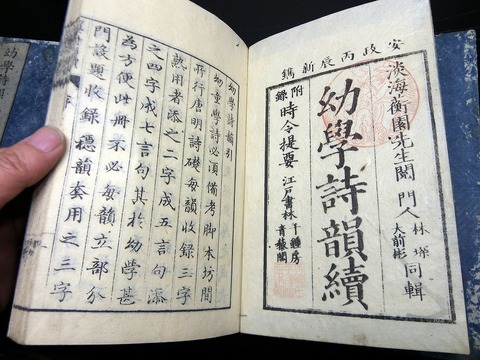 安政丙辰新鐫
淡海衡園先生閲 門人 林
大前彬 同輯
幼學詩韻續
附錄 時令提要 江戸書林 千鍾房
青藜閣
幼學詩韻引
幼童學詩必須備考脚本坊間
所行唐明詩礎每韻收錄三字
熟用者添之二字成五言句添
之四字成七言句其於幼學甚
為方便此冊不必每韻立部分
門設題收錄穩韻套用之三字
幼學詩